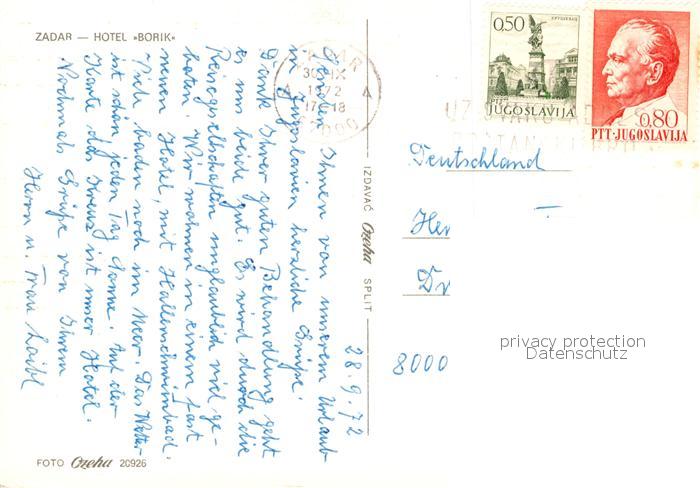 ZADAR — HOTEL »BORIK«
28.9.72
senden Ihnen von unserem Urlaub
in Jugoslawien herzliche Grüße!
Dank Ihrer guten Behandlung geht
es uns beide gut. Es wird durch die
Reisegesellschaften unglaublich viel ge-
boten. Wir wohnen in einem fast
neuen Hotel, mit Hallenschwimbad.
Wir baden noch im Meer. Das Wetter
ist schön jeden Tag Sonne. Auf der
Karte das Kreuz ist unser Hotel.
Nochmals Grüße von Ihrem
Herrn u. Frau Laibl
FOTO Ozeha 20926
IZDAVAČ Ozeha SPLIT
ZADAR
30. IX
1972
17-18
A A
0,50
JUGOSLAVIJA
0,80
PTT-JUGOSLAVIJA
Deutschland
Her
Dr
8000
privacy protection
Datenschutz